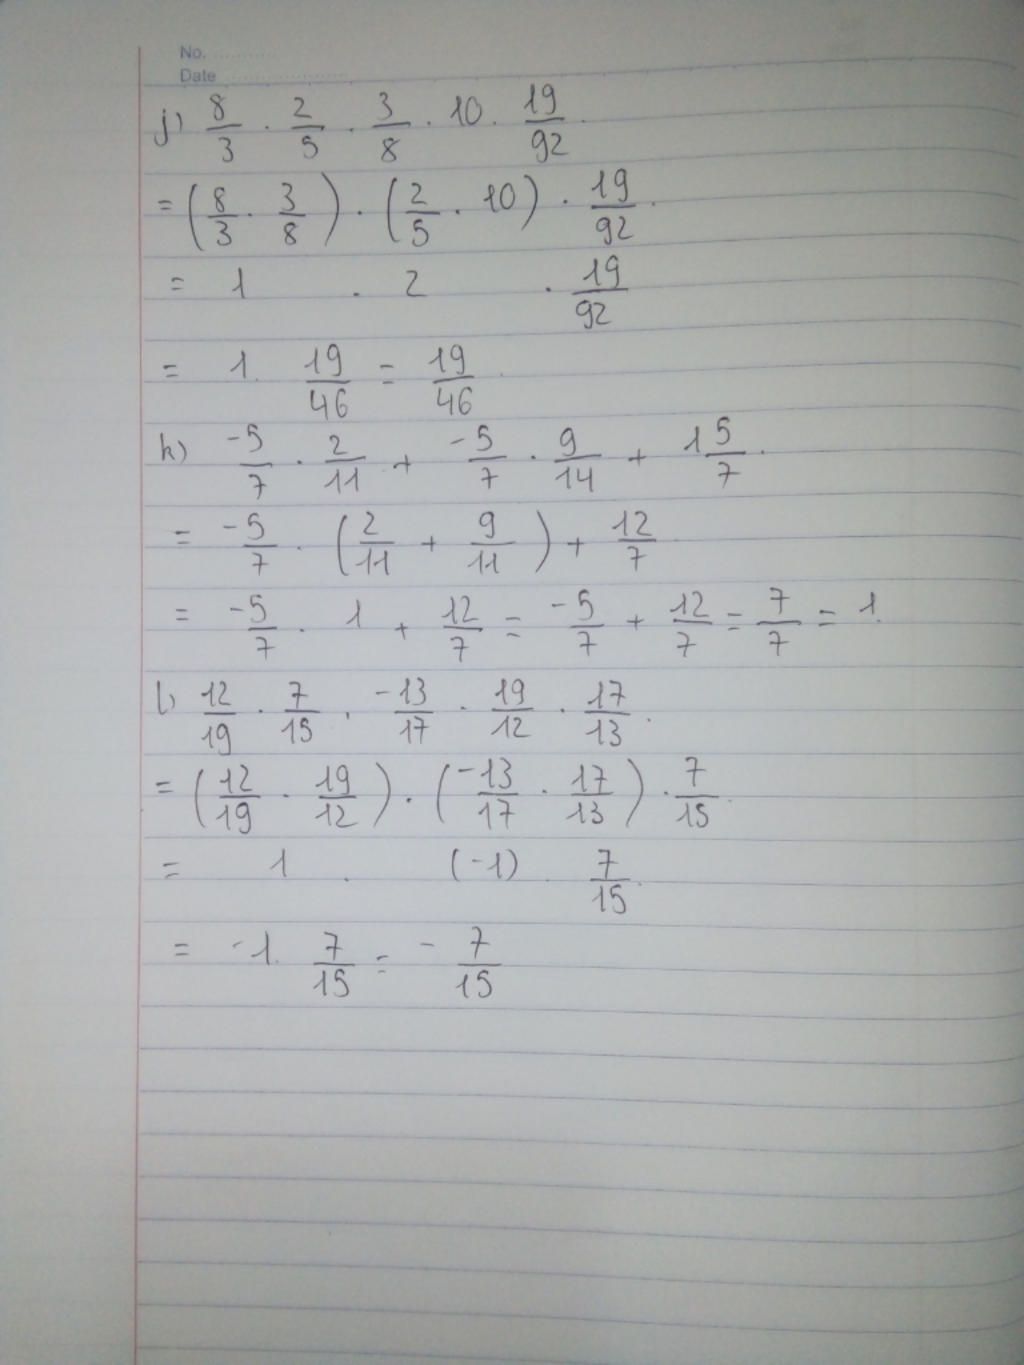 No. ............
Date .....................
j) 8/3 . 2/5 . 3/8 . 10 . 19/92 .
= (8/3 . 3/8) . (2/5 . 10) . 19/92 .
= 1 . 2 . 19/92
= 1 . 19/46 = 19/46 .
k) -5/7 . 2/11 + -5/7 . 9/14 + 1 5/7 .
= -5/7 . (2/11 + 9/11) + 12/7
= -5/7 . 1 + 12/7 = -5/7 + 12/7 = 7/7 = 1.
l) 12/19 . 7/15 . -13/17 . 19/12 . 17/13 .
= (12/19 . 19/12) . (-13/17 . 17/13) . 7/15 .
= 1 . (-1) . 7/15 .
= -1 . 7/15 = - 7/15